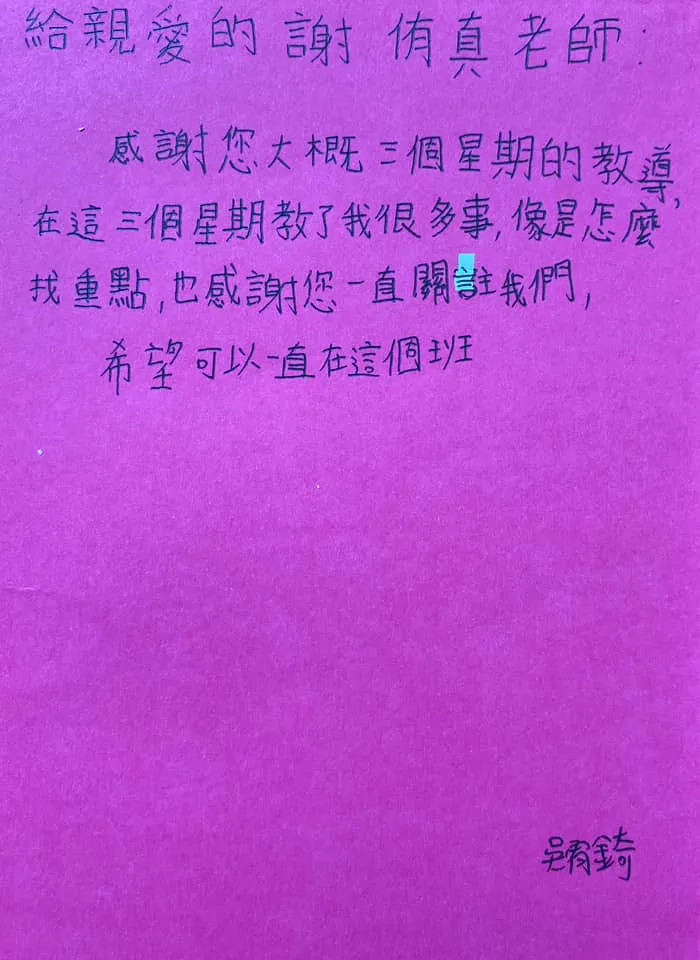 給親愛的謝侑真老師:
感謝您大概三個星期的教導,
在這三個星期教了我很多事,像是怎麼
找重點,也感謝您一直關註我們,
希望可以一直在這個班
吳宥錡